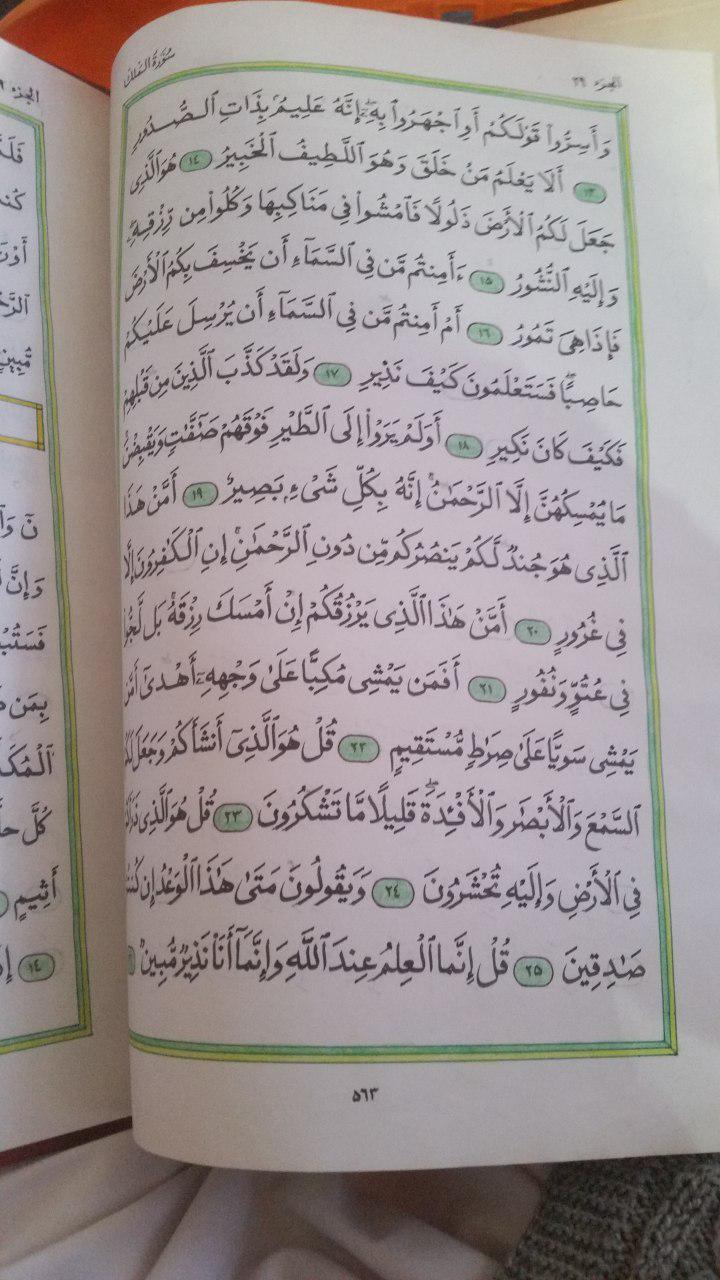 الجزء ٢٩
سُورَةُ المُلك
وَأَسِرُّوا۟ قَوْلَكُمْ أَوِ ٱجْهَرُوا۟ بِهِۦٓ ۖ إِنَّهُۥ عَلِيمٌۢ بِذَاتِ ٱلصُّدُورِ
١٣ أَلَا يَعْلَمُ مَنْ خَلَقَ وَهُوَ ٱللَّطِيفُ ٱلْخَبِيرُ ١٤ هُوَ ٱلَّذِى
جَعَلَ لَكُمُ ٱلْأَرْضَ ذَلُولًا فَٱمْشُوا۟ فِى مَنَاكِبِهَا وَكُلُوا۟ مِن رِّزْقِهِۦ ۖ
وَإِلَيْهِ ٱلنُّشُورُ ١٥ ءَأَمِنتُم مَّن فِى ٱلسَّمَآءِ أَن يَخْسِفَ بِكُمُ ٱلْأَرْضَ
فَإِذَا هِىَ تَمُورُ ١٦ أَمْ أَمِنتُم مَّن فِى ٱلسَّمَآءِ أَن يُرْسِلَ عَلَيْكُمْ
حَاصِبًا ۖ فَسَتَعْلَمُونَ كَيْفَ نَذِيرِ ١٧ وَلَقَدْ كَذَّبَ ٱلَّذِينَ مِن قَبْلِهِمْ
فَكَيْفَ كَانَ نَكِيرِ ١٨ أَوَلَمْ يَرَوْا۟ إِلَى ٱلطَّيْرِ فَوْقَهُمْ صَٰٓفَّٰتٍ وَيَقْبِضْنَ
مَا يُمْسِكُهُنَّ إِلَّا ٱلرَّحْمَٰنُ ۚ إِنَّهُۥ بِكُلِّ شَىْءٍۭ بَصِيرٌ ١٩ أَمَّنْ هَٰذَا
ٱلَّذِى هُوَ جُندٌ لَّكُمْ يَنصُرُكُم مِّن دُونِ ٱلرَّحْمَٰنِ ۚ إِنِ ٱلْكَٰفِرُونَ إِلَّا
فِى غُرُورٍ ٢٠ أَمَّنْ هَٰذَا ٱلَّذِى يَرْزُقُكُمْ إِنْ أَمْسَكَ رِزْقَهُۥ ۚ بَل لَّجُّوا۟
فِى عُتُوٍّ وَنُفُورٍ ٢١ أَفَمَن يَمْشِى مُكِبًّا عَلَىٰ وَجْهِهِۦٓ أَهْدَىٰٓ أَمَّن
يَمْشِى سَوِيًّا عَلَىٰ صِرَٰطٍ مُّسْتَقِيمٍ ٢٢ قُلْ هُوَ ٱلَّذِىٓ أَنشَأَكُمْ وَجَعَلَ لَكُمُ
ٱلسَّمْعَ وَٱلْأَبْصَٰرَ وَٱلْأَفْـِٔدَةَ ۖ قَلِيلًا مَّا تَشْكُرُونَ ٢٣ قُلْ هُوَ ٱلَّذِى
فِى ٱلْأَرْضِ وَإِلَيْهِ تُحْشَرُونَ ٢٤ وَيَقُولُونَ مَتَىٰ هَٰذَا ٱلْوَعْدُ إِن كُنتُمْ
صَٰدِقِينَ ٢٥ قُلْ إِنَّمَا ٱلْعِلْمُ عِندَ ٱللَّهِ وَإِنَّمَآ أَنَا۠ نَذِيرٌ مُّبِينٌ
٥٦٣